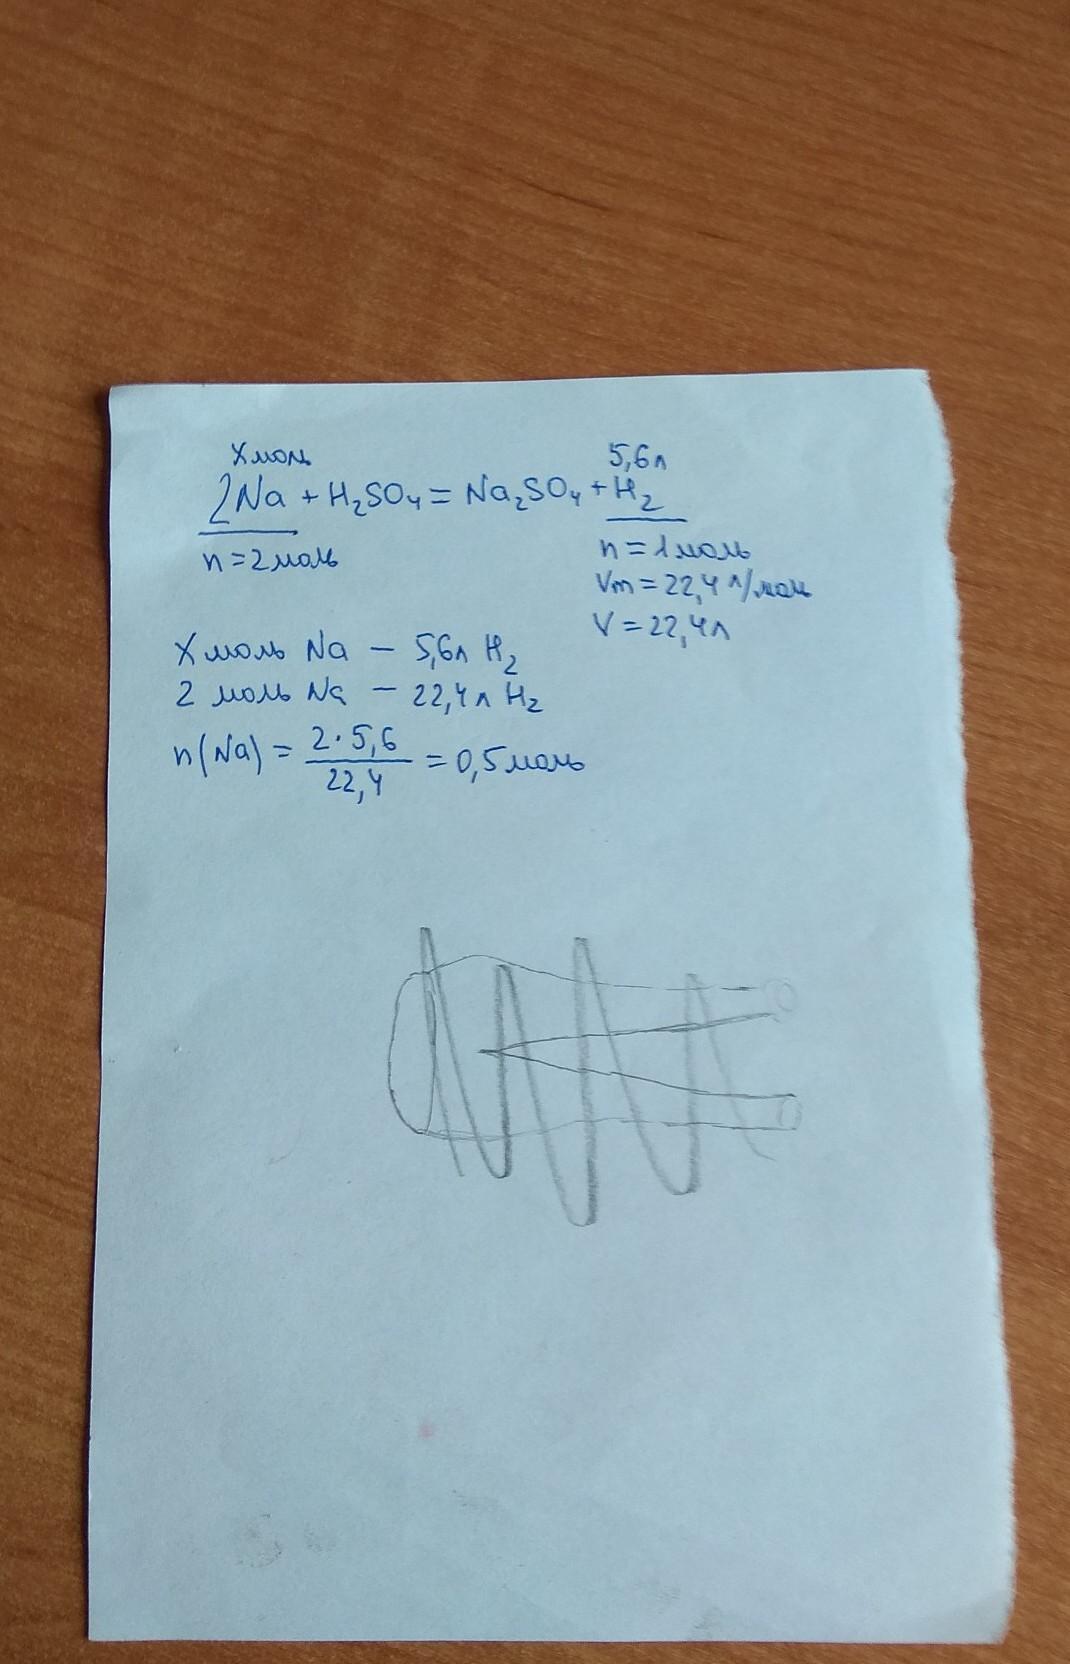 X моль 5,6л
2Na + H₂SO₄ = Na₂SO₄ + H₂
n = 2 моль n = 1 моль
Vm = 22,4 л/моль
V = 22,4л
X моль Na – 5,6л H₂
2 моль Na – 22,4л H₂
n(Na) = 2·5,6/22,4 = 0,5 моль